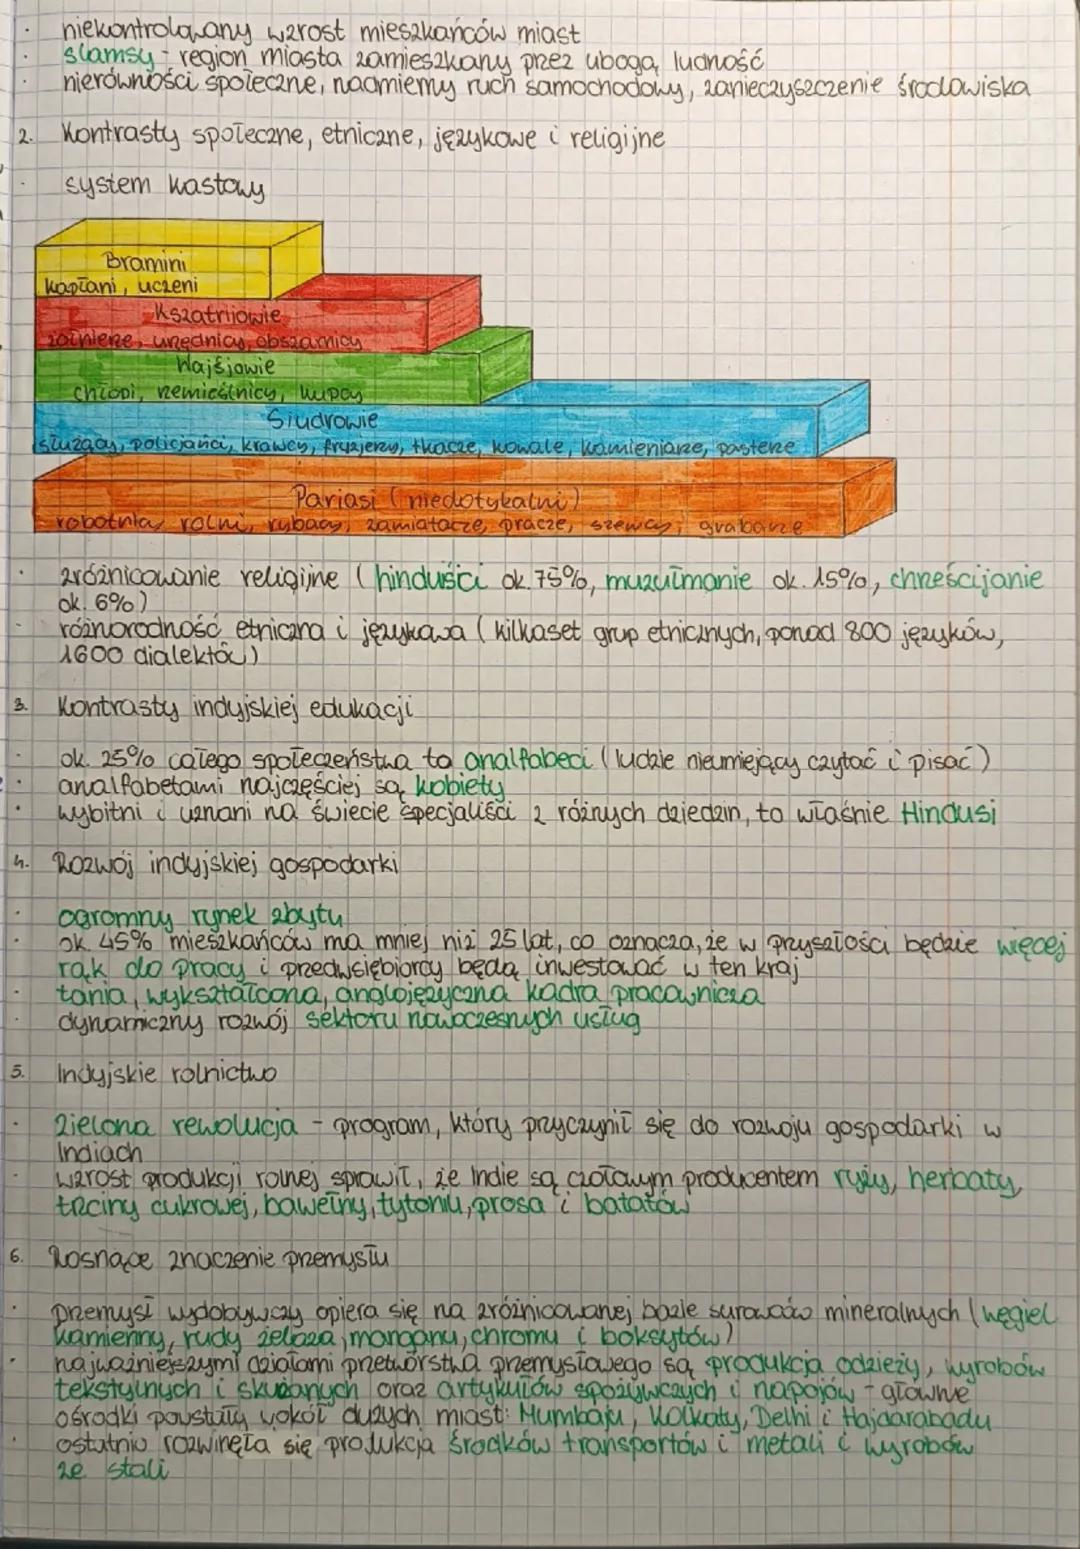 · niekontrolowany wzrost mieszkańców miast
· slamsy - region miasta zamieszkany przez ubogą ludność
· nierówności społeczne, nadmierny ruch samochodowy, zanieczyszczenie środowiska
2. Kontrasty społeczne, etniczne, językowe i religijne
· system kastowy
Bramini
kapłani, uczeni
Kszatrijowie
żołnierze, urzędnicy, obszarnicy
Wajśjowie
chłopi, rzemieślnicy, kupcy
Siudrowie
służący, policjańci, krawcy, fryzjerzy, tkacze, kowale, kamieniarze, pasterze
Pariasi (niedotykalni)
robotnicy rolni, rybacy, zamiatacze, pracze, szewcy, grabarze
· zróżnicowanie religijne (hinduiści ok. 75%, muzułmanie ok. 15%, chrześcijanie
ok. 6%)
· różnorodność etniczna i językowa (kilkaset grup etnicznych, ponad 800 języków,
1600 dialektów)
3. Kontrasty indyjskiej edukacji
· ok. 25% całego społeczeństwa to analfabeci (ludzie nieumiejący czytać i pisać)
· analfabetami najczęściej są kobiety
· wybitni i uznani na świecie specjaliści z różnych dziedzin, to właśnie Hindusi
4. Rozwój indyjskiej gospodarki
· ogromny rynek zbytu
· ok. 45% mieszkańców ma mniej niż 25 lat, co oznacza, że w przyszłości będzie więcej
rąk do pracy i przedwsiębiorcy będą inwestować w ten kraj
· tania, wykształcona, anglojęzyczna kadra pracownicza
· dynamiczny rozwój sektoru nowoczesnych usług
5. Indyjskie rolnictwo
· Zielona rewolucja - program, który przyczynił się do rozwoju gospodarki w
Indiach
· wzrost produkcji rolnej sprawił, że Indie są czołowym producentem ryży, herbaty,
trzciny cukrowej, bawełny, tytoniu, prosa i batatów
6. Rosnące znaczenie przemysłu
· przemysł wydobywczy opiera się na zróżnicowanej bazie surowców mineralnych (węgiel
kamienny, rudy żelaza, manganu, chromu i boksytów)
· najważniejszymi działami przetwórstwa przemysłowego są produkcja odzieży, wyrobów
tekstylnych i skużanych oraz artykułów spożywczych i napojów - główne
ośrodki powstały wokół dużych miast: Mumbaju, Kolkaty, Delhi i Hajdarabadu
· ostatnio rozwinęła się produkcja środków transportów i metali i wyrobów
ze stali